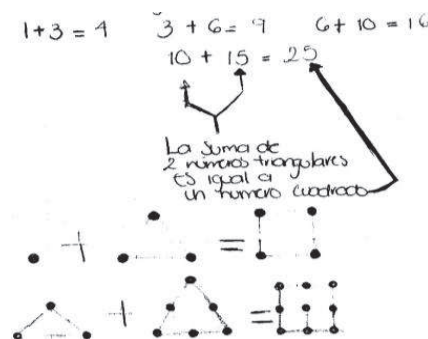 1+3=4 3+6=9 6+10=16
10 + 15 = 25
La suma de
2 números triangulares
es igual a
un numero cuadrado
+ =
+ =